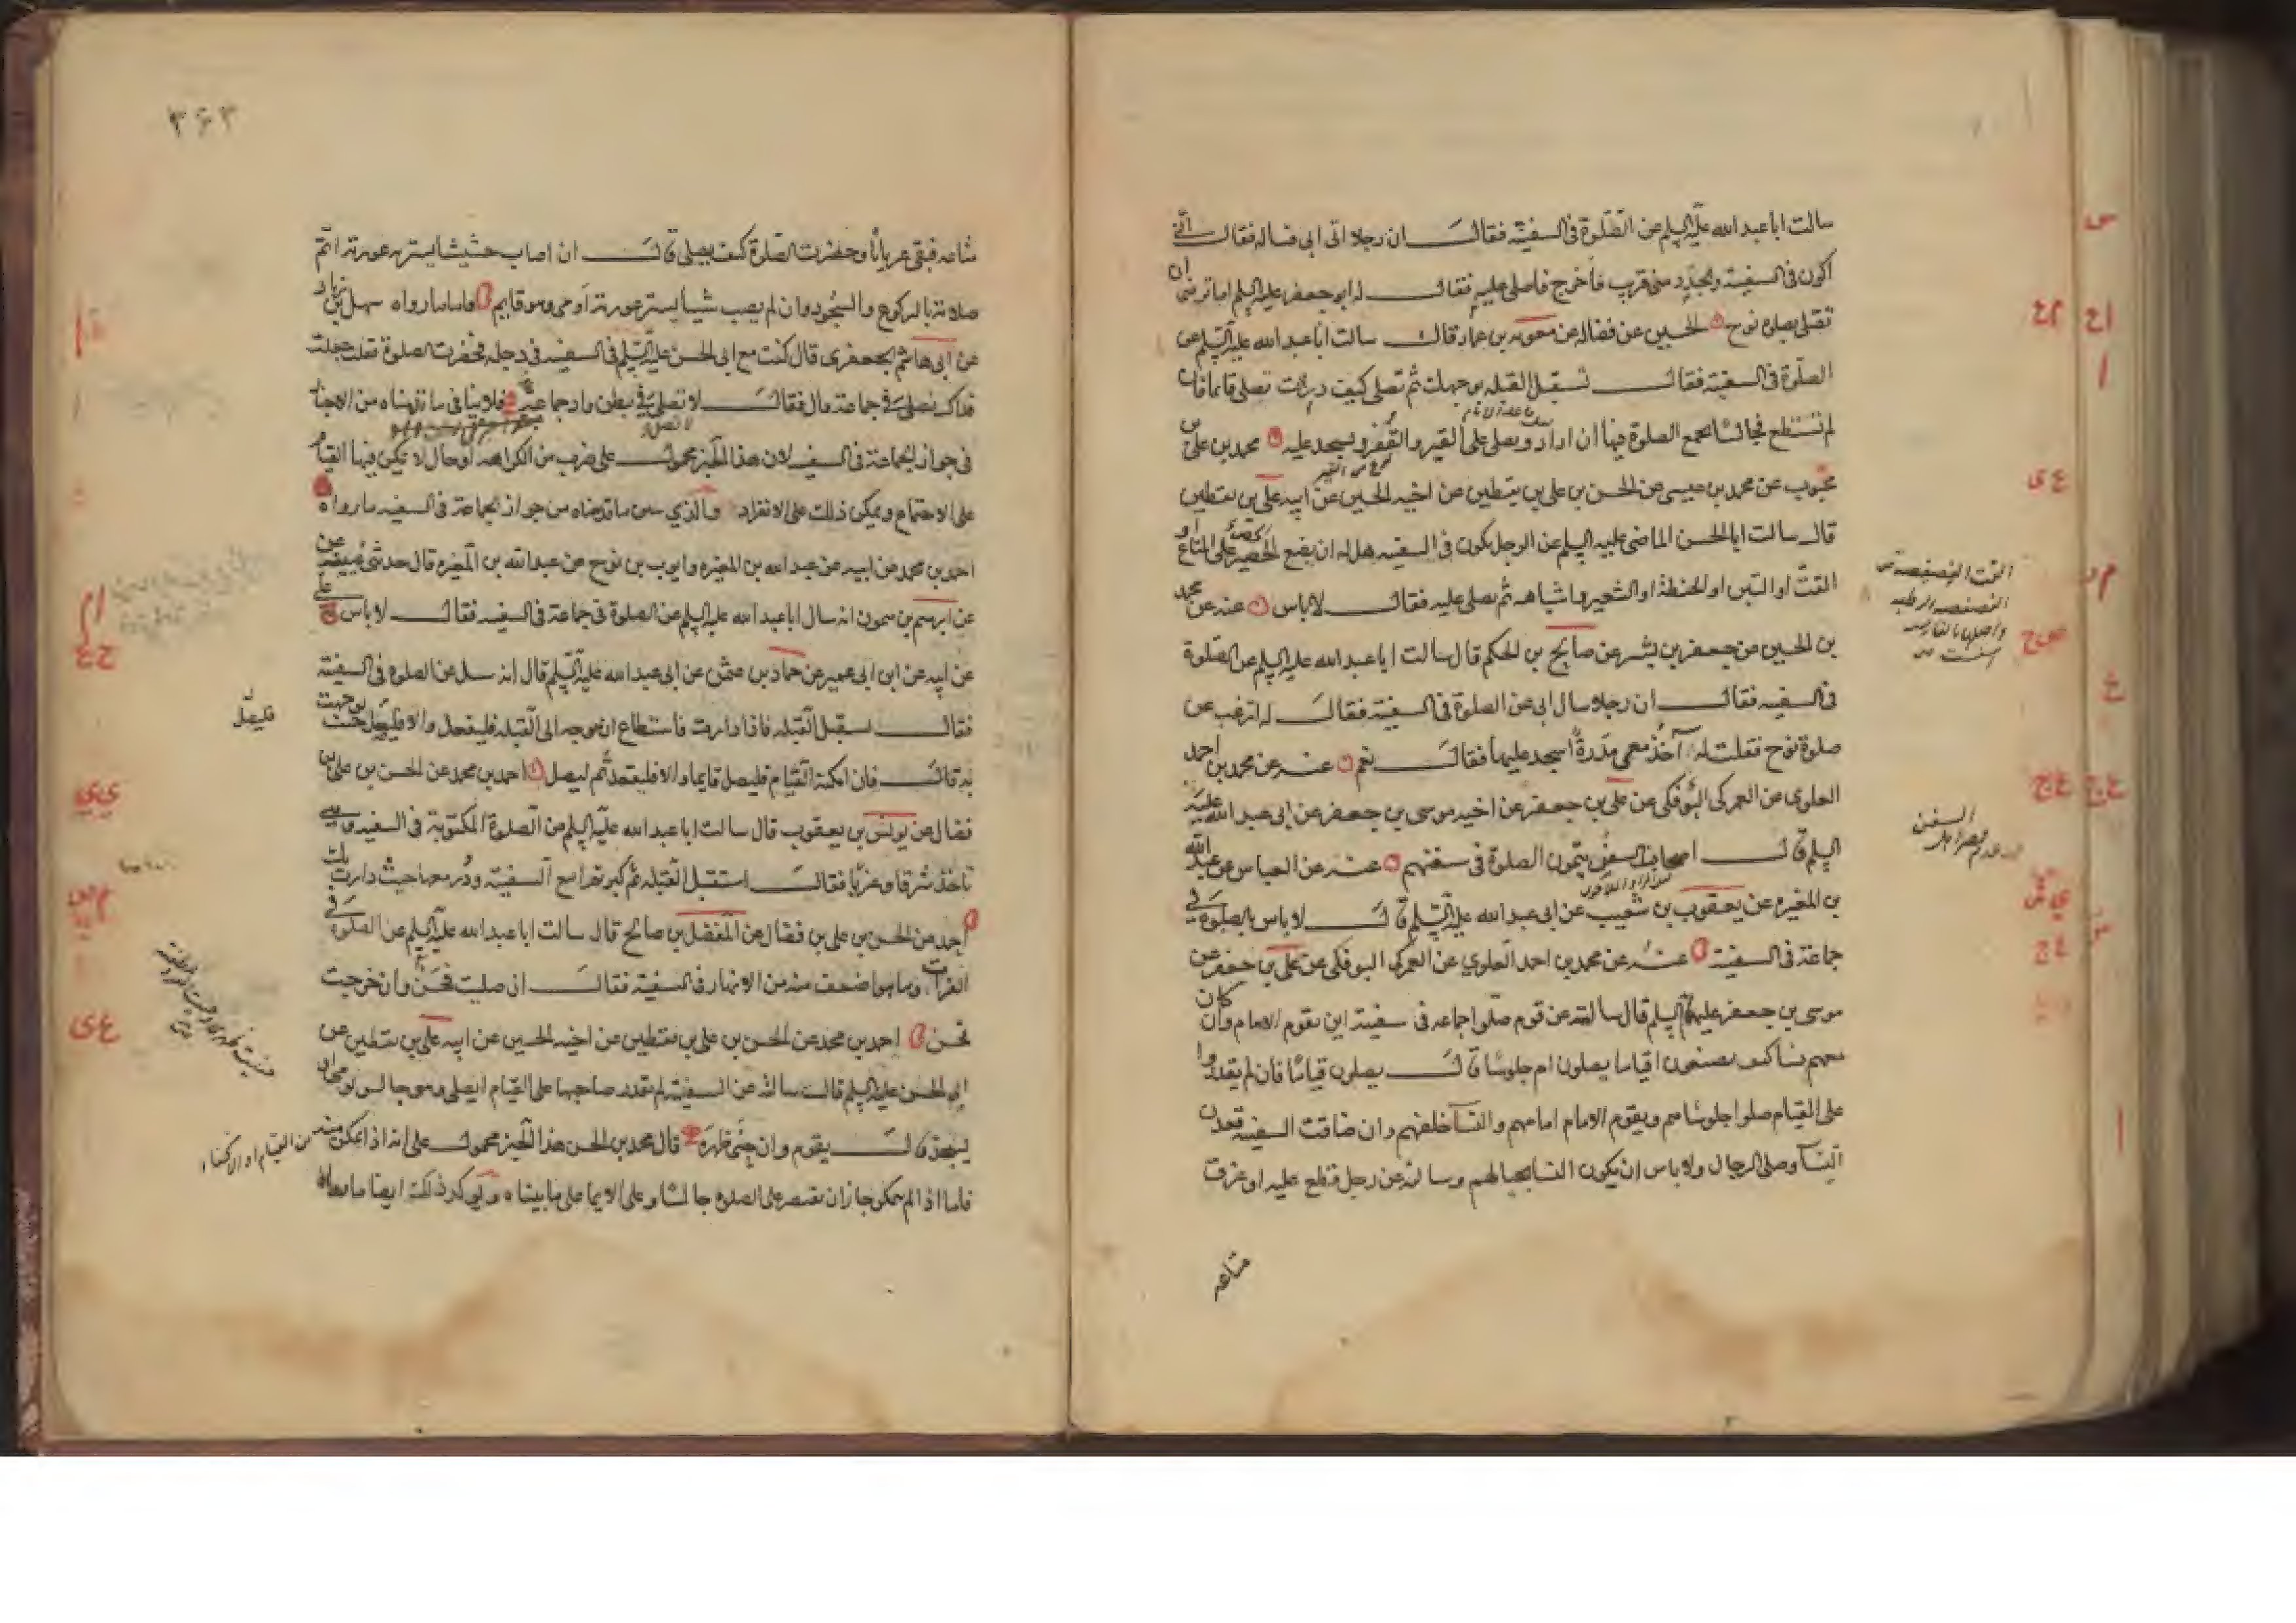 سالت ابا عبد الله عليه السلم عن الصّلوة فى السفينة فقال ان رجلا اتى ابى فساله فقال انّى
اكون فى السفينة والجدد منى قريب فاخرج فاصلى عليه فقال له ابو جعفر عليه السلم اما ترضى ان
تصلى بصلوة نوح الحسين عن فضاله عن معويه بن عمار قال سالت ابا عبد الله عليه السلم عن
الصلوة فى السفينة فقال تستقبل القبله بوجهك ثم تصلى كيف دارت تصلى قايما فان
لم تستطع فجالسا يجمع الصلوة فيها ان اراد ويصلى على القير والقفر ويسجد عليه محمد بن على بن
محبوب عن محمد بن عيسى عن الحسن بن على بن يقطين عن اخيه الحسين عن ابيه على بن يقطين
قال سالت ابا الحسن الماضى عليه السلم عن الرجل يكون فى السفينه هل له ان يضع الحصير على المتاع او
القتّ او التبن او الحنطة او الشعير واشباهه ثم يصلى عليه فقال لا باس عنه عن محمد
بن الحسين عن جعفر بن بشير عن صالح بن الحكم قال سالت ابا عبد الله عليه السلم عن الصلوة
فى السفينه فقال ان رجلا سال ابى عن الصلوة فى السفينة فقال له اترغب عن
صلوة نوح فقلت له آخذ معى مدرةً اسجد عليها فقال نعم عنه عن محمد بن احمد
العلوى عن العمركى البوفكى عن على بن جعفر عن اخيه موسى بن جعفر عن ابى عبد الله عليه
السلم قال اصحاب السفن يتمون الصلوة فى سفنهم عنه عن العباس عن عبد الله
بن المغيره عن يعقوب بن شعيب عن ابى عبد الله عليه السّلم قال لا باس بالصلوة فى
جماعة فى السفينة عنه عن محمد بن احمد العلوي عن العمركى البوفكى عن على بن جعفر عن
موسى بن جعفر عليهم السلم قال سالته عن قوم صلوا جماعه فى سفينة اين يقوم الامام وان كان
معهم نسا كيف يصنعون اقياما يصلون ام جلوسًا قال يصلون قيامًا فان لم يقدروا
على القيام صلوا جلوسا هم ويقوم الامام امامهم والنسا خلفهم وان ضاقت السفينه قعدن
النسآ وصلى الرجال ولا باس ان يكون النسا بحيالهم وسالته عن رجل قطع عليه او غرق
متاعه
۳۶۳
متاعه فبقى عريانًا وحضرت الصّلوة كيف يصلى قال ان اصاب حشيشا يستر به عورته اتمّ
صلاته بالركوع والسّجود وان لم يصب شيأ يستر عورته أومى وهو قايم فاما ما رواه سهل بن زياد
عن ابى هاشم الجعفرى قال كنت مع ابى الحسن عليه السّلم فى السفينه فى دجله فحضرت الصلوة فقلت جعلت
فداك نصلى فى جماعة قال فقال لا تصلى فى بطن واد جماعة فلا ينافى ما قدمناه من الاخبار
فى جواز الجماعة فى السفينه لان هذا الخبر محمول على ضرب من الكراهه او حال لا يمكن فيها القيام
على الاجتماع ويمكن ذلك على الانفراد والذي يبين ما قدمناه من جواز الجماعة فى السفينه ما رواه
احمد بن محمد عن ابيه عن عبد الله بن المغيره وايوب بن نوح عن عبد الله بن المغيره قال حدثنى عيينة
عن ابرهيم بن ميمون انه سال ابا عبد الله عليه السلم عن الصلوة فى جماعة فى السفينه فقال لا باس على
عن ابيه عن ابن ابى عمير عن حماد بن عثمن عن ابى عبد الله عليه السّلم قال انه سئل عن الصلوة فى السفينة
فقال يستقبل القبله فاذا دارت فاستطاع ان يتوجه الى القبله فليفعل والا فليصل حيث توجهت
به قال فان امكنه القيام فليصل قايما والا فليقعد ثم ليصل احمد بن محمد عن الحسن بن على بن
فضال عن يونس بن يعقوب قال سالت ابا عبد الله عليه السلم عن الصلوة المكتوبة فى السفينه وهى
تاخذ شرقا وغربا فقال استقبل القبله ثم كبر ثم اتبع السفينة ودُر معها حيث دارت بك
احمد عن الحسن بن على بن فضال عن المفضل بن صالح قال سالت ابا عبد الله عليه السلم عن الصلوة فى
الفرات وما هو اضعف منه من الانهار فى السفينة فقال ان صليت فحسن وان خرجت
فحسن احمد بن محمد عن الحسن بن على بن يقطين عن اخيه الحسين عن ابيه على بن يقطين عن
ابى الحسن عليه السلم قال سالته عن السفينة لم يقدر صاحبها على القيام ايصلى وهو جالس يومى او
يسجد قال يقوم وان حنى ظهره قال محمد بن الحسن هذا الخبر محمول على انه اذا تمكن منه من القيام او الانحناء
فاما اذا لم يتمكن جاز ان يقتصر على الصلوة جالسًا وعلى الايما على ما بيناه ويوكد ذلك ايضا ما رواه
فليصلّ